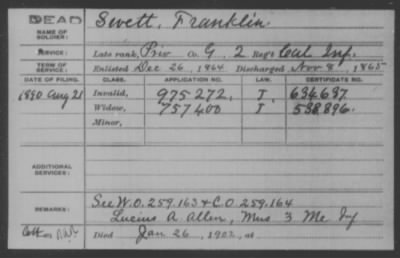 DEAD
NAME OF SOLDIER: Swett, Franklin
SERVICE: Late rank, Priv Co. G, 2 Reg't Cal Inf.
TERM OF SERVICE: Enlisted Dec 26, 1864 Discharged Nov 8, 1865
DATE OF FILING. CLASS. APPLICATION NO. LAW. CERTIFICATE NO.
1890 Aug 21 Invalid, 975272. J. 634687.
Widow, 757400 J. 538896.
Minor,
ADDITIONAL SERVICES:
REMARKS: See W.O. 259.163 & C.O. 259.164
Lucius A. Allen, Mus 3 Me Inf
Died Jan 26, 1902, at